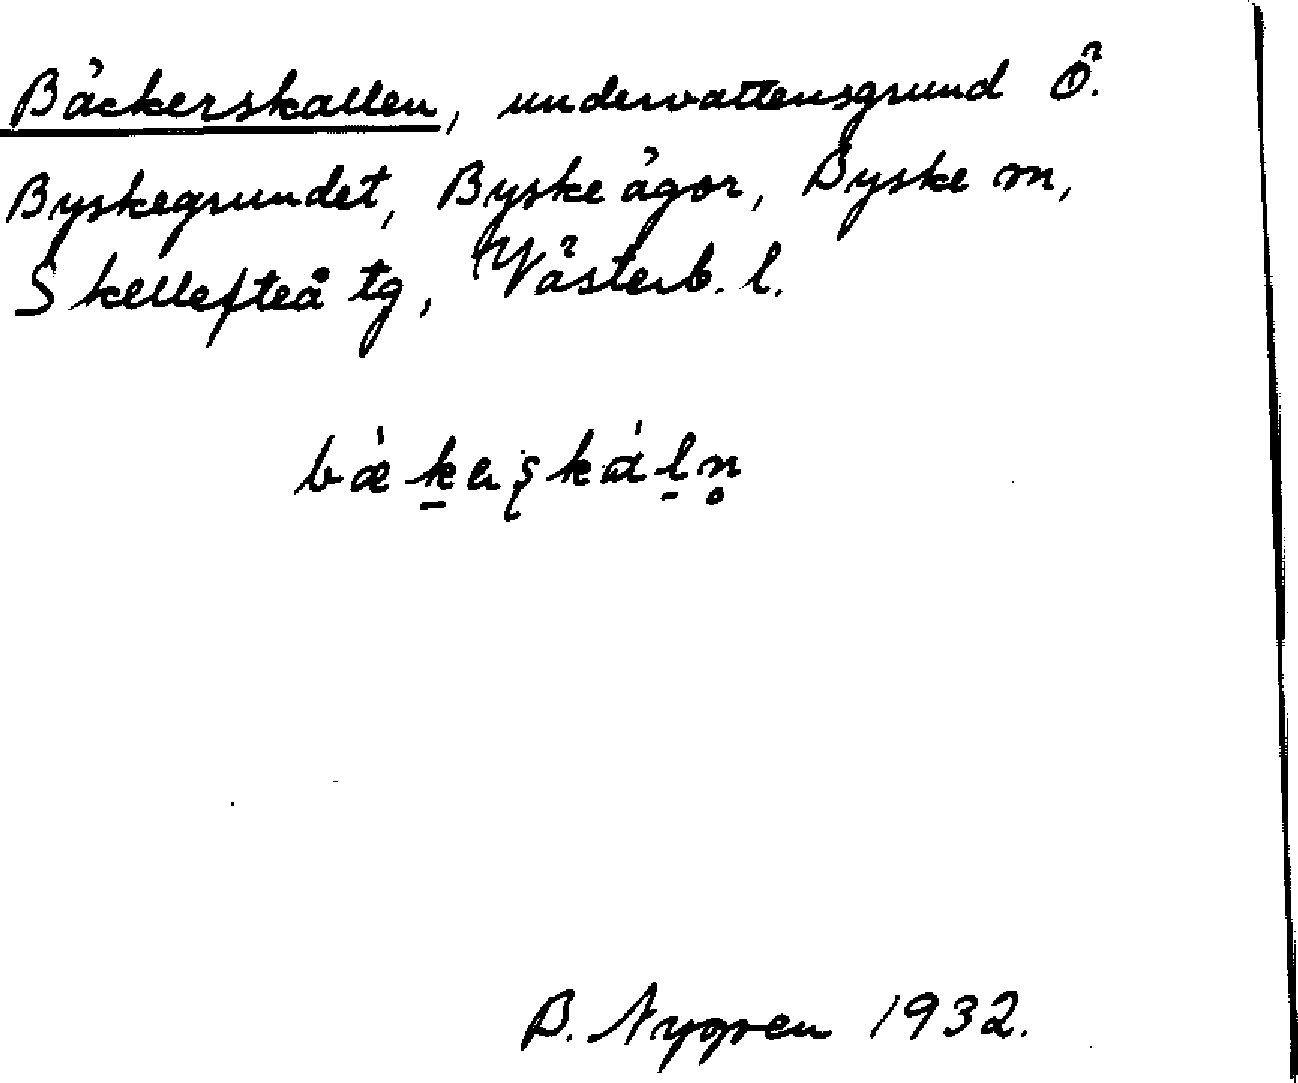 Bäckerskallen, undervattensgrund Ö.
Byskegrundet, Byske ägor, Byske sn,
Skellefteå tg, Västerb. l.
B. Nygren 1932.